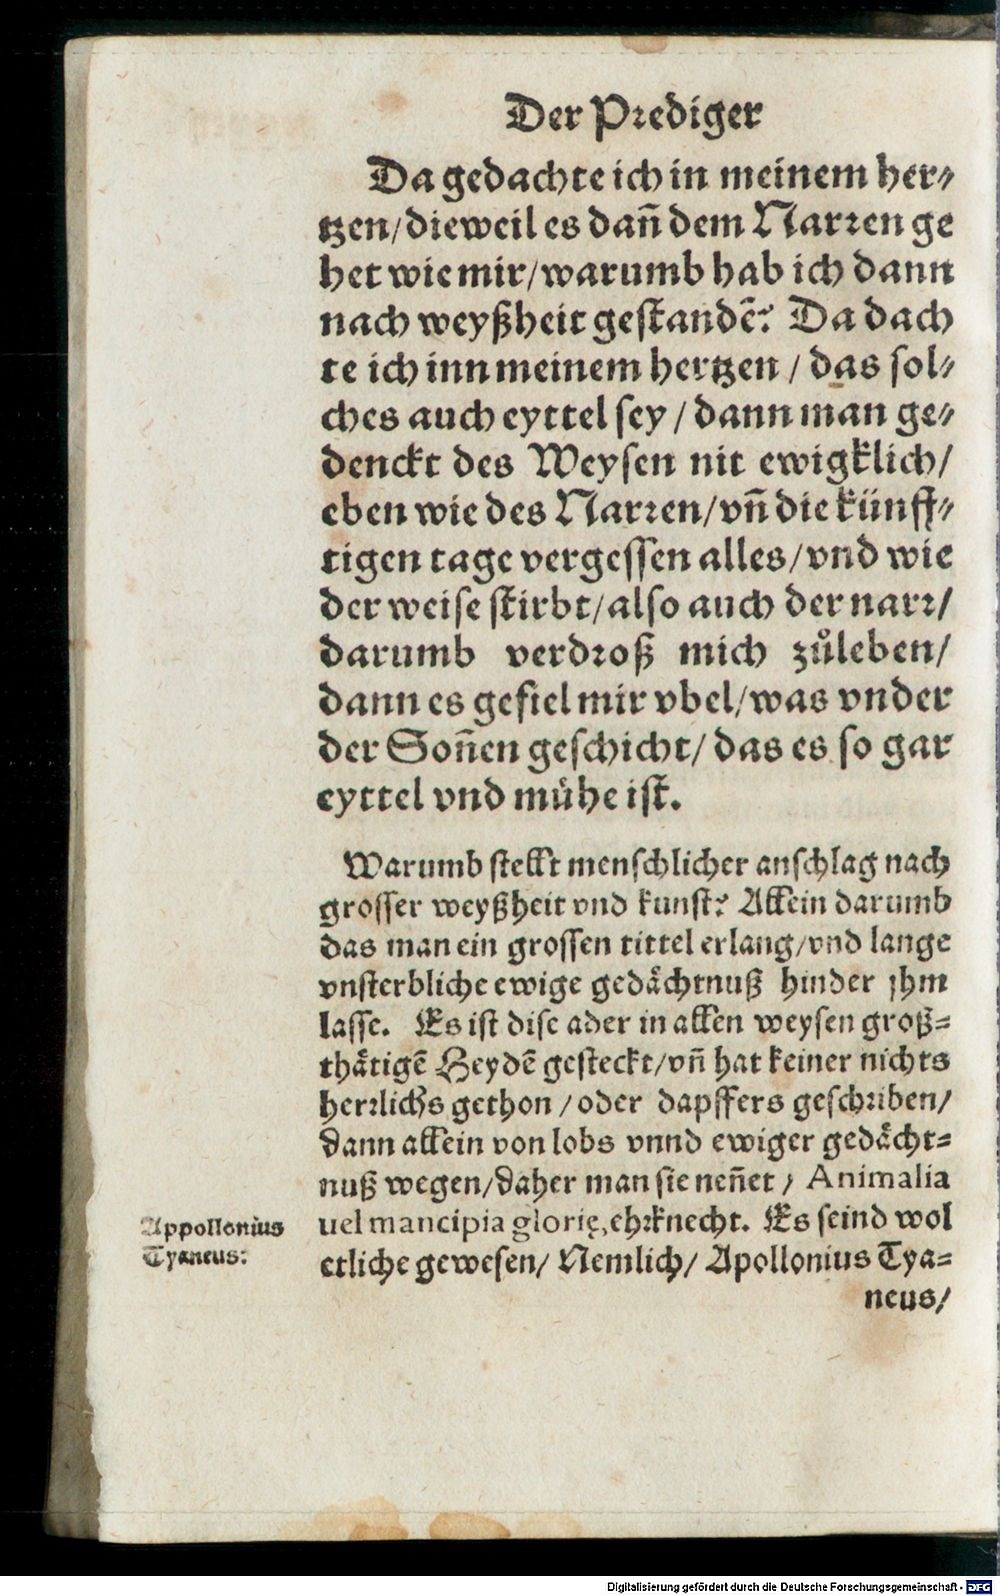 Der Prediger
Da gedachte ich in meinem her⸗
tzen/dieweil es dañ dem Narren ge
het wie mir/warumb hab ich dann
nach weyßheit gestandẽ? Da dach
te ich inn meinem hertzen / das sol⸗
ches auch eyttel sey / dann man ge⸗
denckt des Weysen nit ewigklich/
eben wie des Narren/vñ die künff⸗
tigen tage vergessen alles/vnd wie
der weise stirbt/also auch der narr/
darumb verdroß mich zůleben/
dann es gefiel mir vbel/was vnder
der Soñen geschicht/das es so gar
eyttel vnd mühe ist.
Warumb stellt menschlicher anschlag nach
grosser weyßheit vnd kunst? Allein darumb
das man ein grossen tittel erlang/vnd lange
vnsterbliche ewige gedächtnuß hinder jhm
lasse. Es ist dise ader in allen weysen groß⸗
thätigẽ Heydẽ gesteckt/vñ hat keiner nichts
herrlichs gethon / oder dapffers geschriben/
dann allein von lobs vnnd ewiger gedächt⸗
nuß wegen/daher man sie neñet / Animalia
uel mancipia glorię, ehrknecht. Es seind wol
etliche gewesen/ Nemlich/ Apollonius Tya⸗
neus/
Appollonius
Tyaneus:
Digitalisierung gefördert durch die Deutsche Forschungsgemeinschaft - DFG